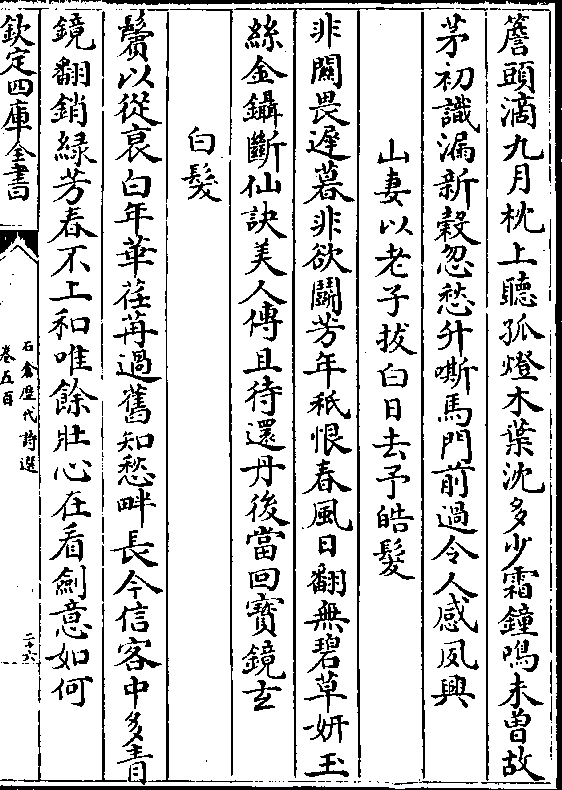 簷頭滴九月枕上聽孤燈木葉沈多少霜鐘鳴未曽故
茅初識漏新穀忽愁升嘶馬門前過令人感夙興
山妻以老子拔白日去予皓髮
非闗畏遲暮非欲鬬芳年秪恨春風日翻無碧草妍玉
絲金鑷斷仙訣美人傳且待還丹後當回寳鏡𤣥
白髮
鬢以從衰白年華荏苒過舊知愁畔長今信客中多青
鏡翻銷緑芳春不上和唯餘壯心在看劍意如何
欽定四庫全書
石倉歴代詩選
卷五百
二十六